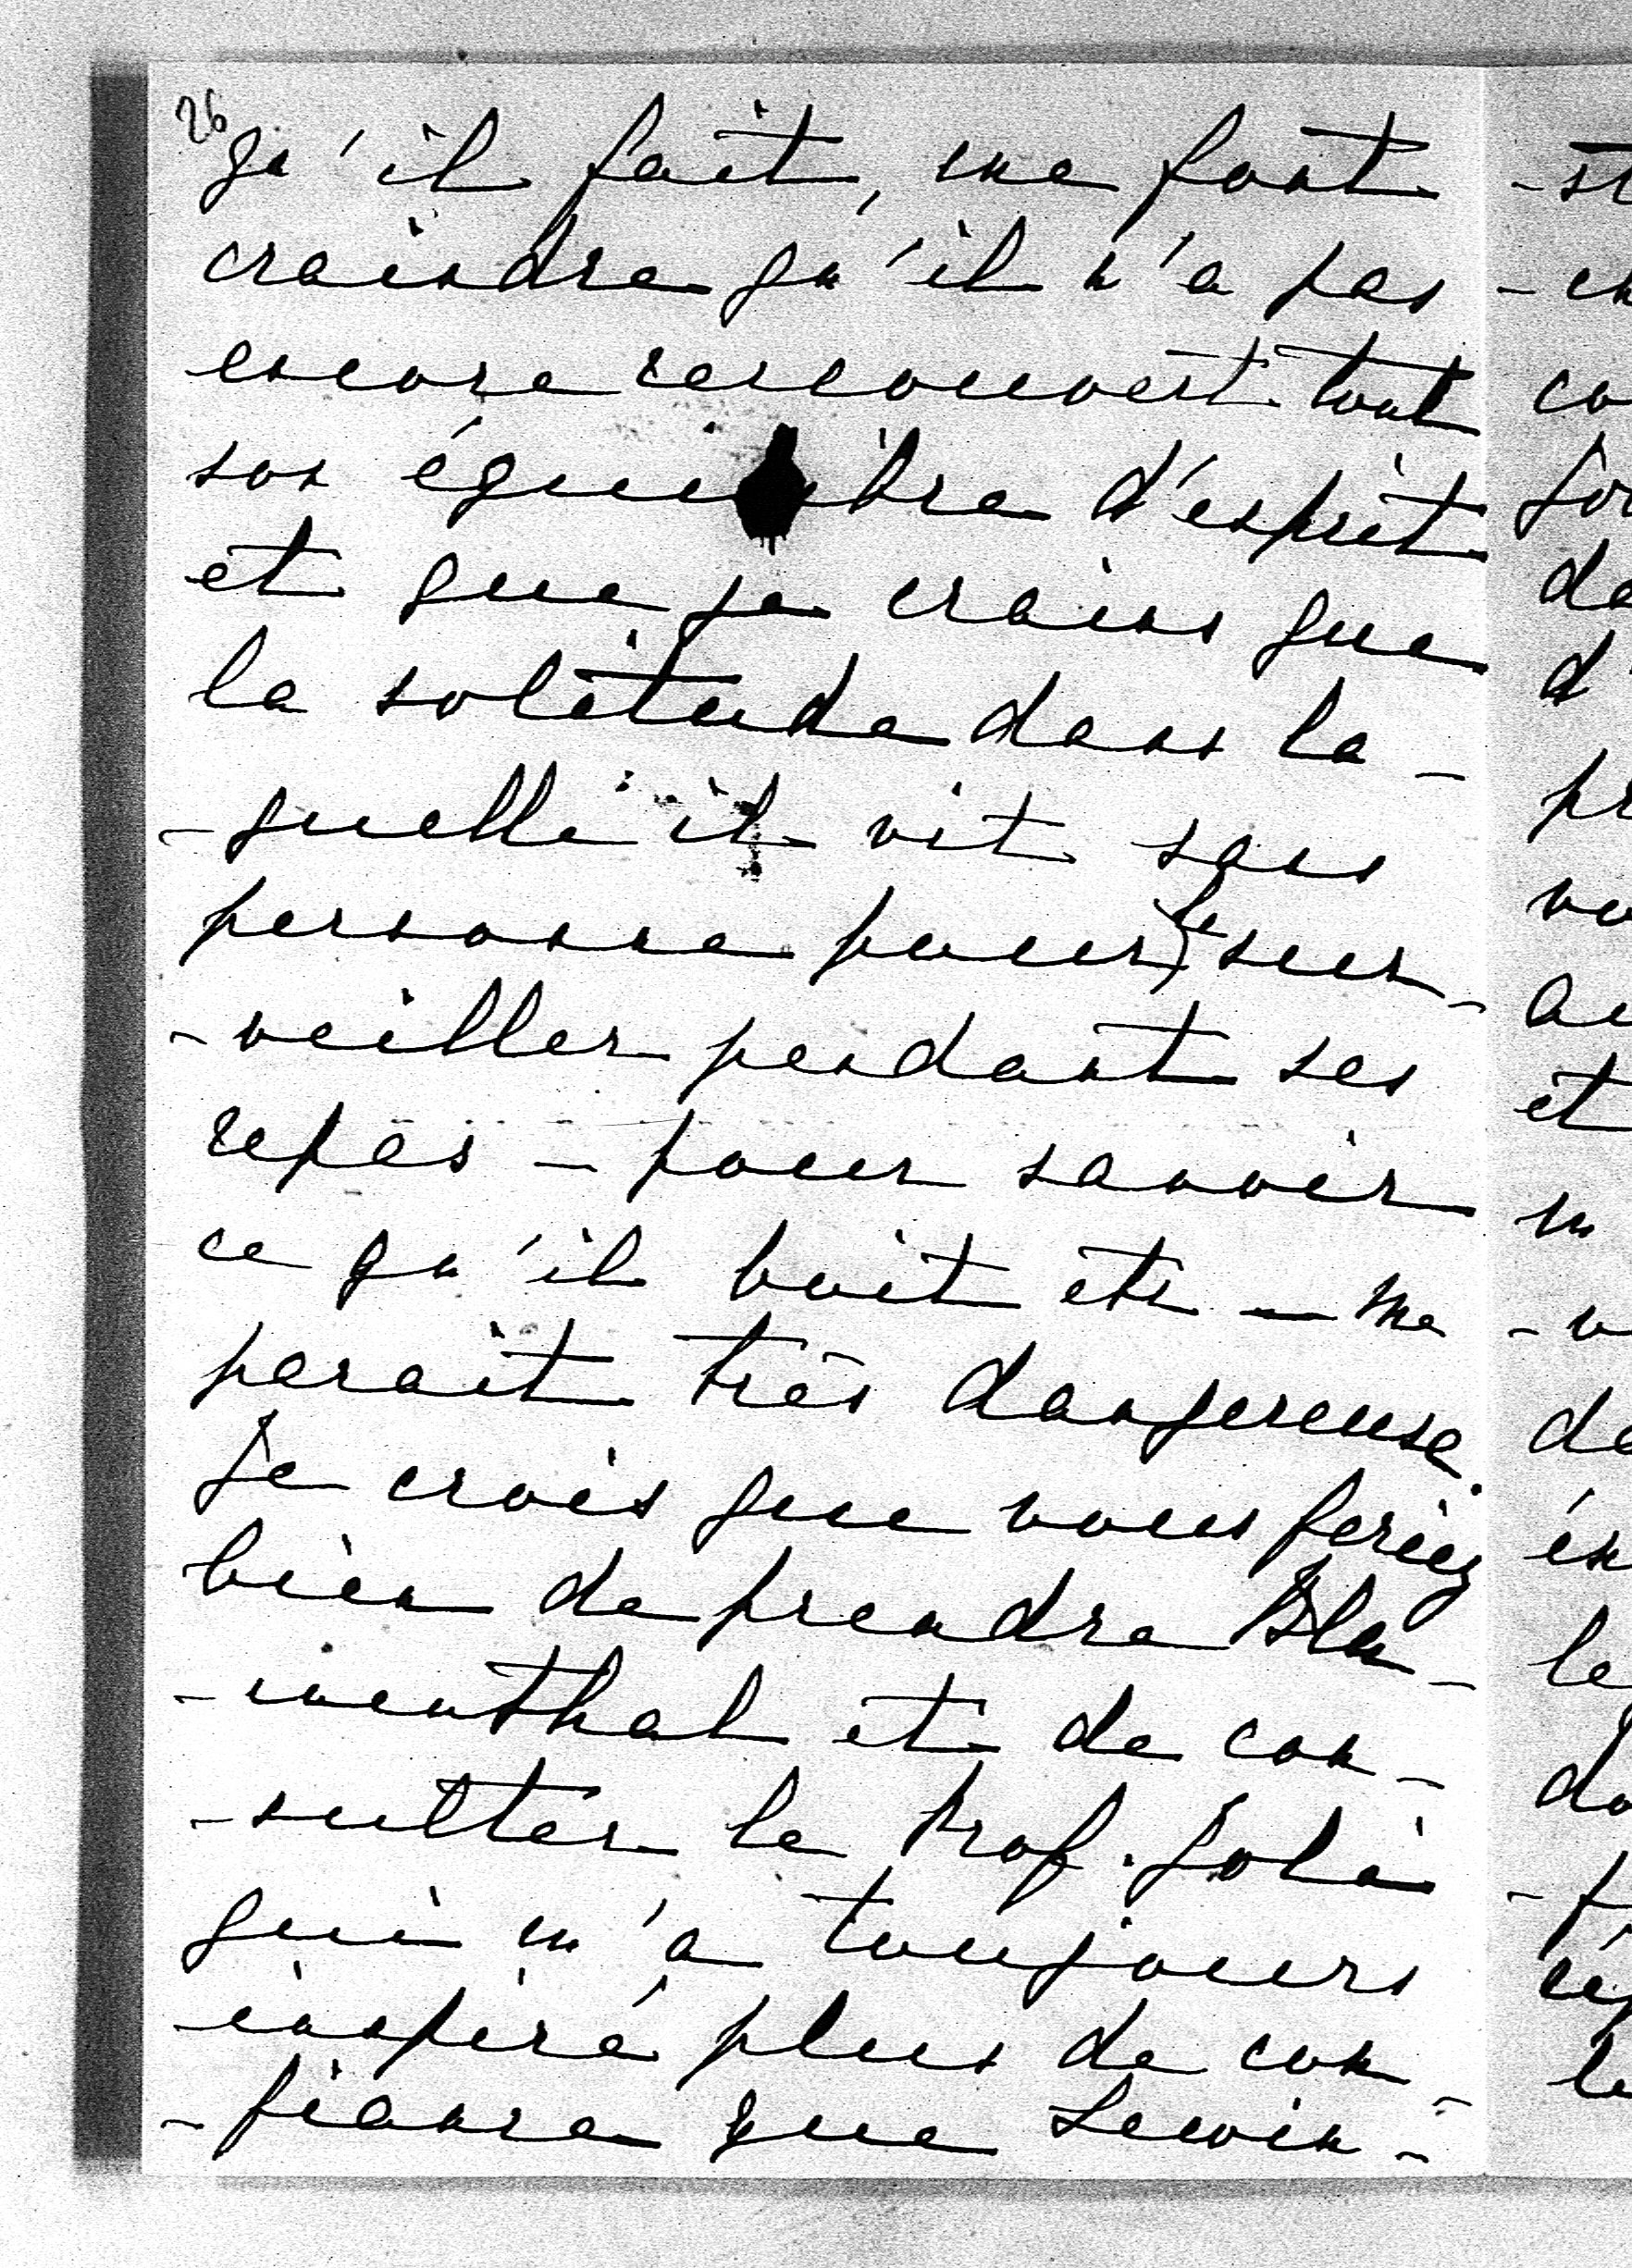 26
qu'il fait, me font
craindre qu'il n'a pas
encore recouvert tout
son équilibre d'esprit
et que je crains que
la solitude dans la-
-quelle il vit sans
personne pour le sur-
-veiller pendant ses
repas - pour savoir
ce qu'il boit etc - me
parait très dangereuse.
Je crois que vous feriez
bien de prendre Blu-
-menthal et de con-
-sulter le Prof. Joli
qui m'a toujours
inspiré plus de con-
-fiance que Lewin-